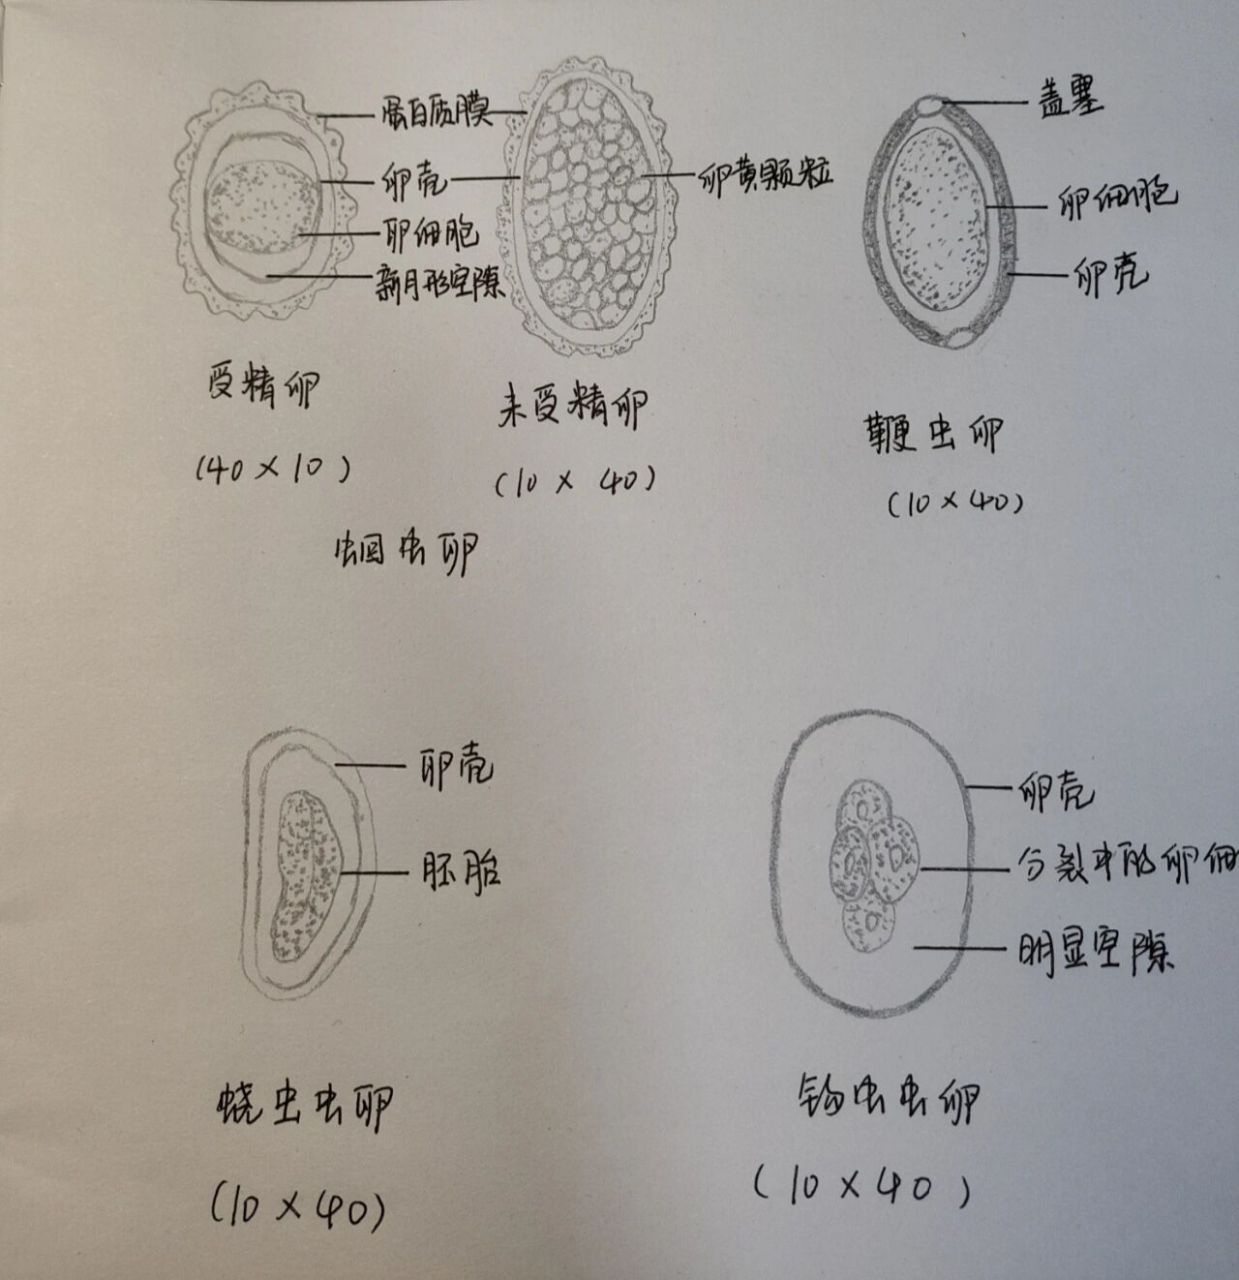 蛋白质膜
卵壳
卵细胞
新月形空隙
卵黄颗粒
受精卵
(40×10)
未受精卵
(10×40)
蛔虫卵
盖塞
卵细胞
卵壳
鞭虫卵
(10×40)
卵壳
胚胎
蛲虫虫卵
(10×40)
卵壳
分裂中的卵细
明显空隙
钩虫虫卵
(10×40)